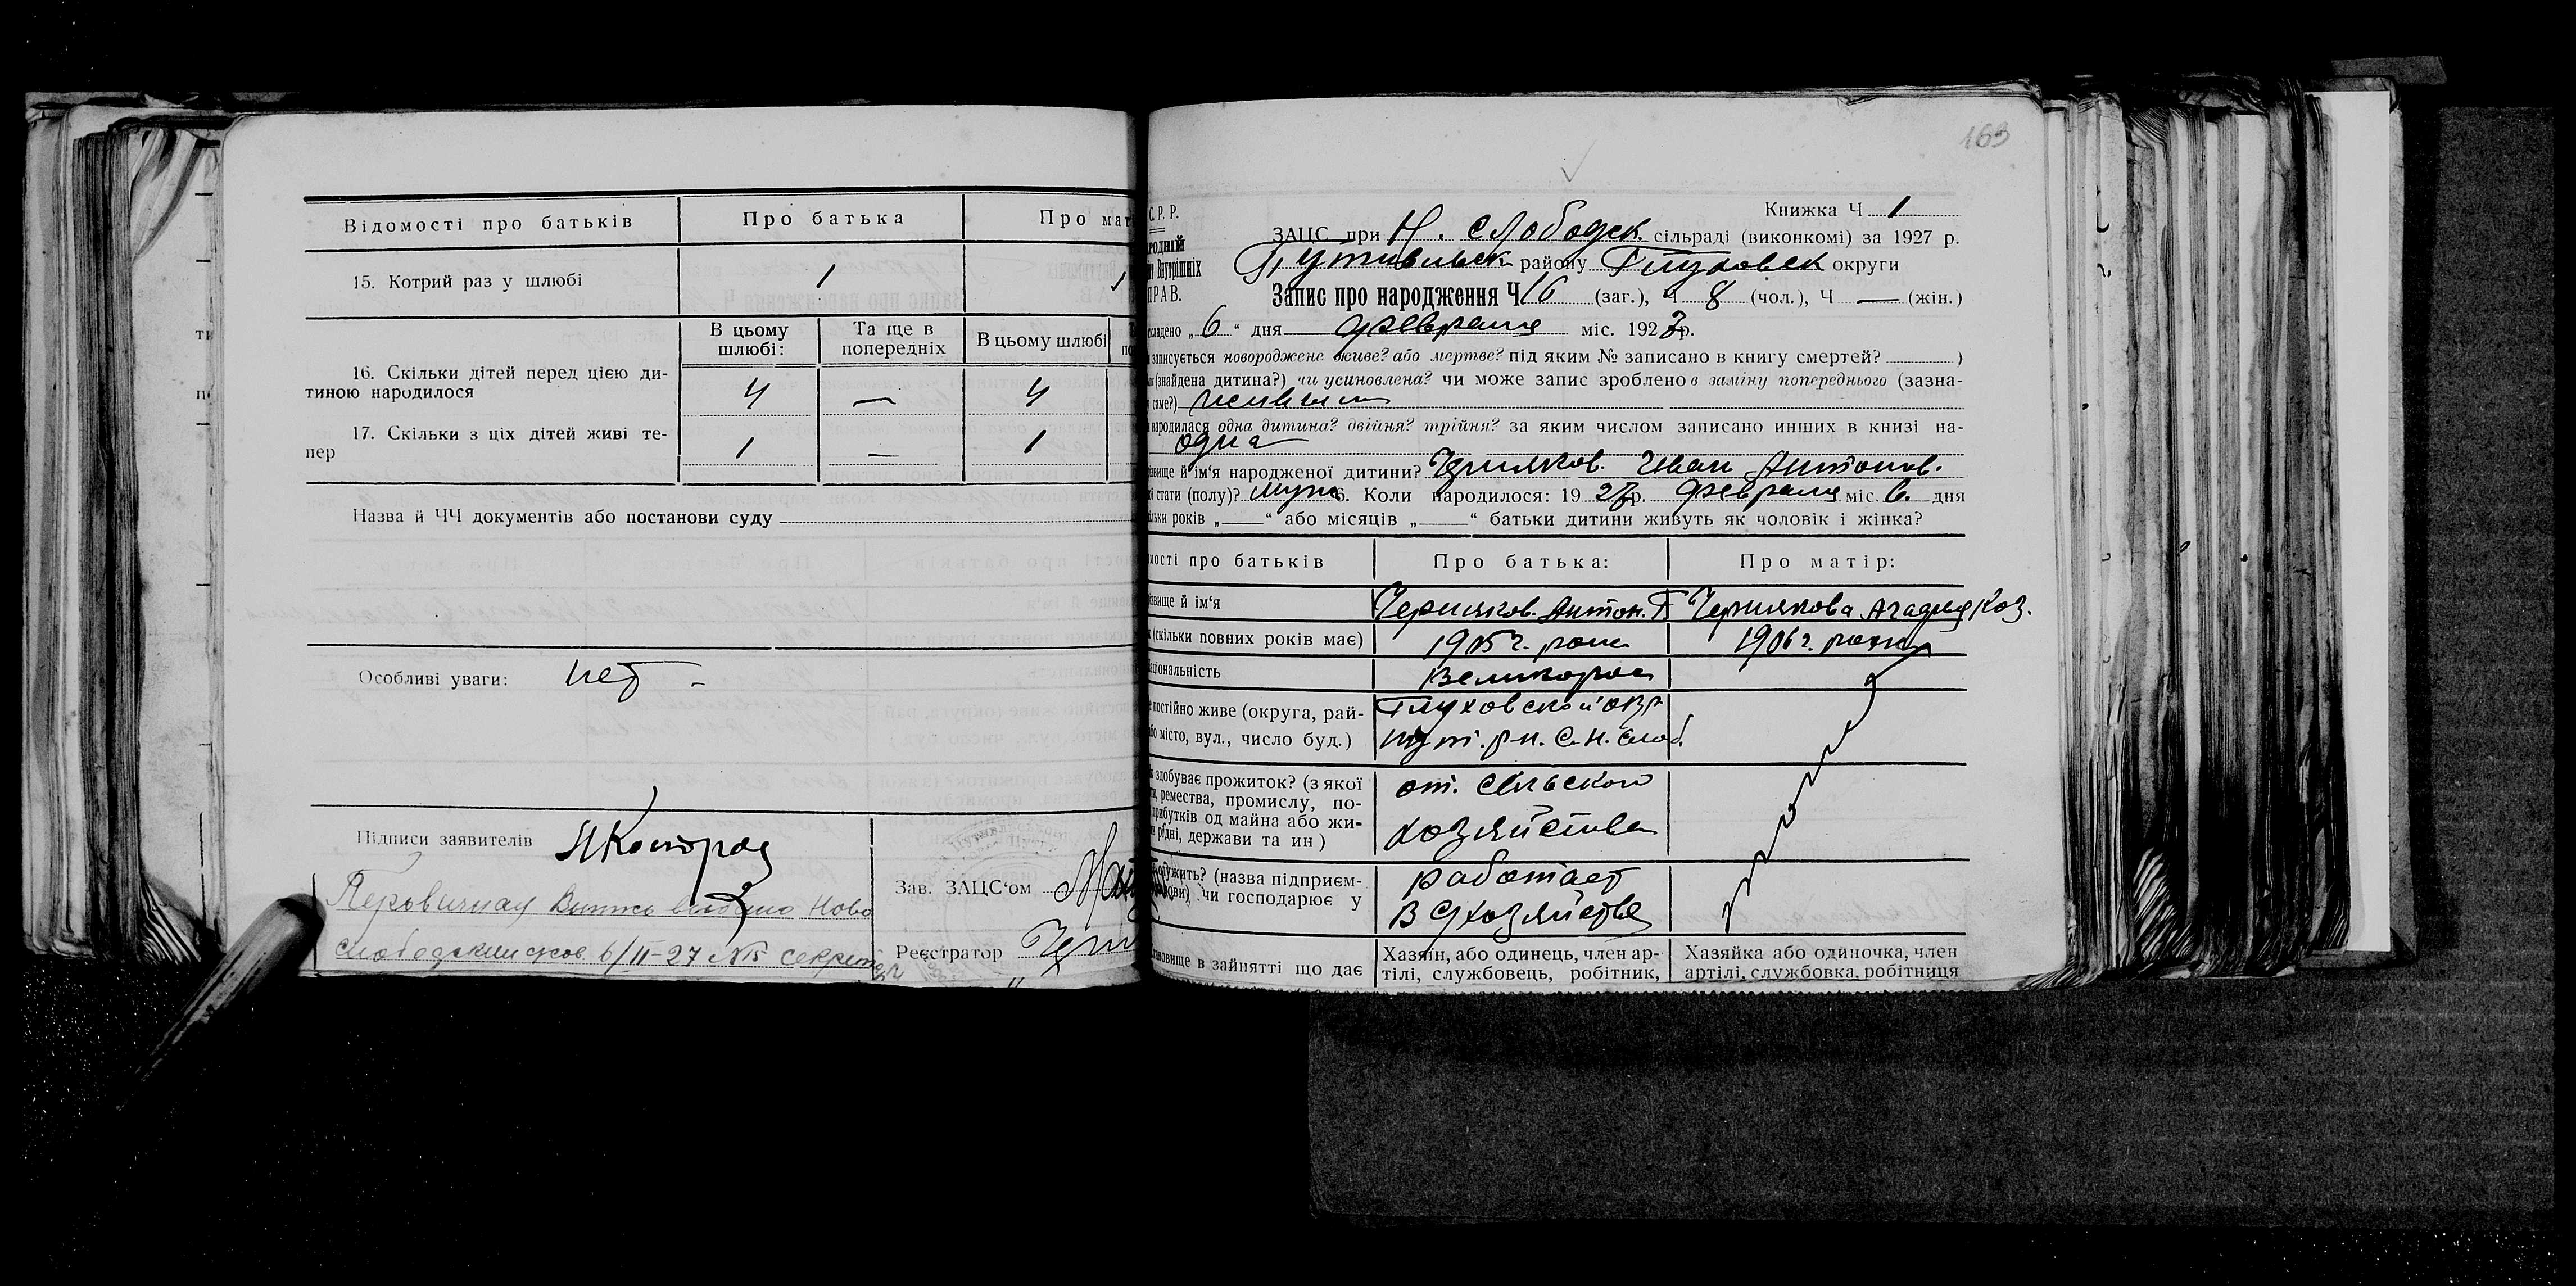 Відомості про батьків
Про батька
Про мат
15. Котрий раз у шлюбі
1
1
В цьому шлюбі:
Та ще в попередніх
В цьому шлюбі
16. Скільки дітей перед цією ди-
тиною народилося
4
—
4
17. Скільки з ціх дітей живі те-
пер
1
—
1
Назва й ЧЧ документів або постанови суду
Особливі уваги: нет -
Підписи заявителів
Зав. ЗАЦС‘ом
Реєстратор
слободским 6/II-27 №15 секрет
163
С. Р. Р.
Книжка Ч 1
ЗАЦС при Н. Слободск. сільраді (виконкомі) за 1927 р.
Внутрішніх
Путивльск району Глуховск округи
ПРАВ.
Запис про народження Ч 16 (заг.), Ч 8 (чол.), Ч — (жін.)
складено „ 6 “ дня февраля міс. 1927 р.
записується новороджене живе? або мертве? під яким № записано в книгу смертей? )
(знайдена дитина?) чи усиновлена? чи може запис зроблено в заміну попереднього (зазна-
саме?) живым
народилася одна дитина? двійня? трійня? за яким числом записано инших в книзі на-
одна
звище й ім‘я народженої дитини? Черняков. Иван Антонов.
стати (полу)? муж 6. Коли народилося: 19 27 р. февраля міс. 6. дня
ільки років „ — “ або місяців „ — “ батьки дитини живуть як чоловік і жінка?
мості про батьків
Про батька:
Про матір:
звище й ім‘я
Черняков. Антон. П
Чернякова
(скільки повних років має)
1905 г. рож
1906 г. рожд
аціональність
Великорос
постійно живе (округа, рай-
або місто, вул., число буд.)
Глуховской окр
Пут. р-н. с. Н. Слоб.
здобуває прожиток? (з якої
ремества, промислу, по-
прибутків од майна або жи-
рідні, держави та ин)
от. сельского
хозяйства
служить? (назва підприєм-
чи господарює у
работает
в с/хозяйстве
тановище в зайнятті що дає
Хазяїн, або одинець, член ар-
тілі, службовець, робітник,
Хазяйка або одиночка, член
артілі, службовка, робітниця